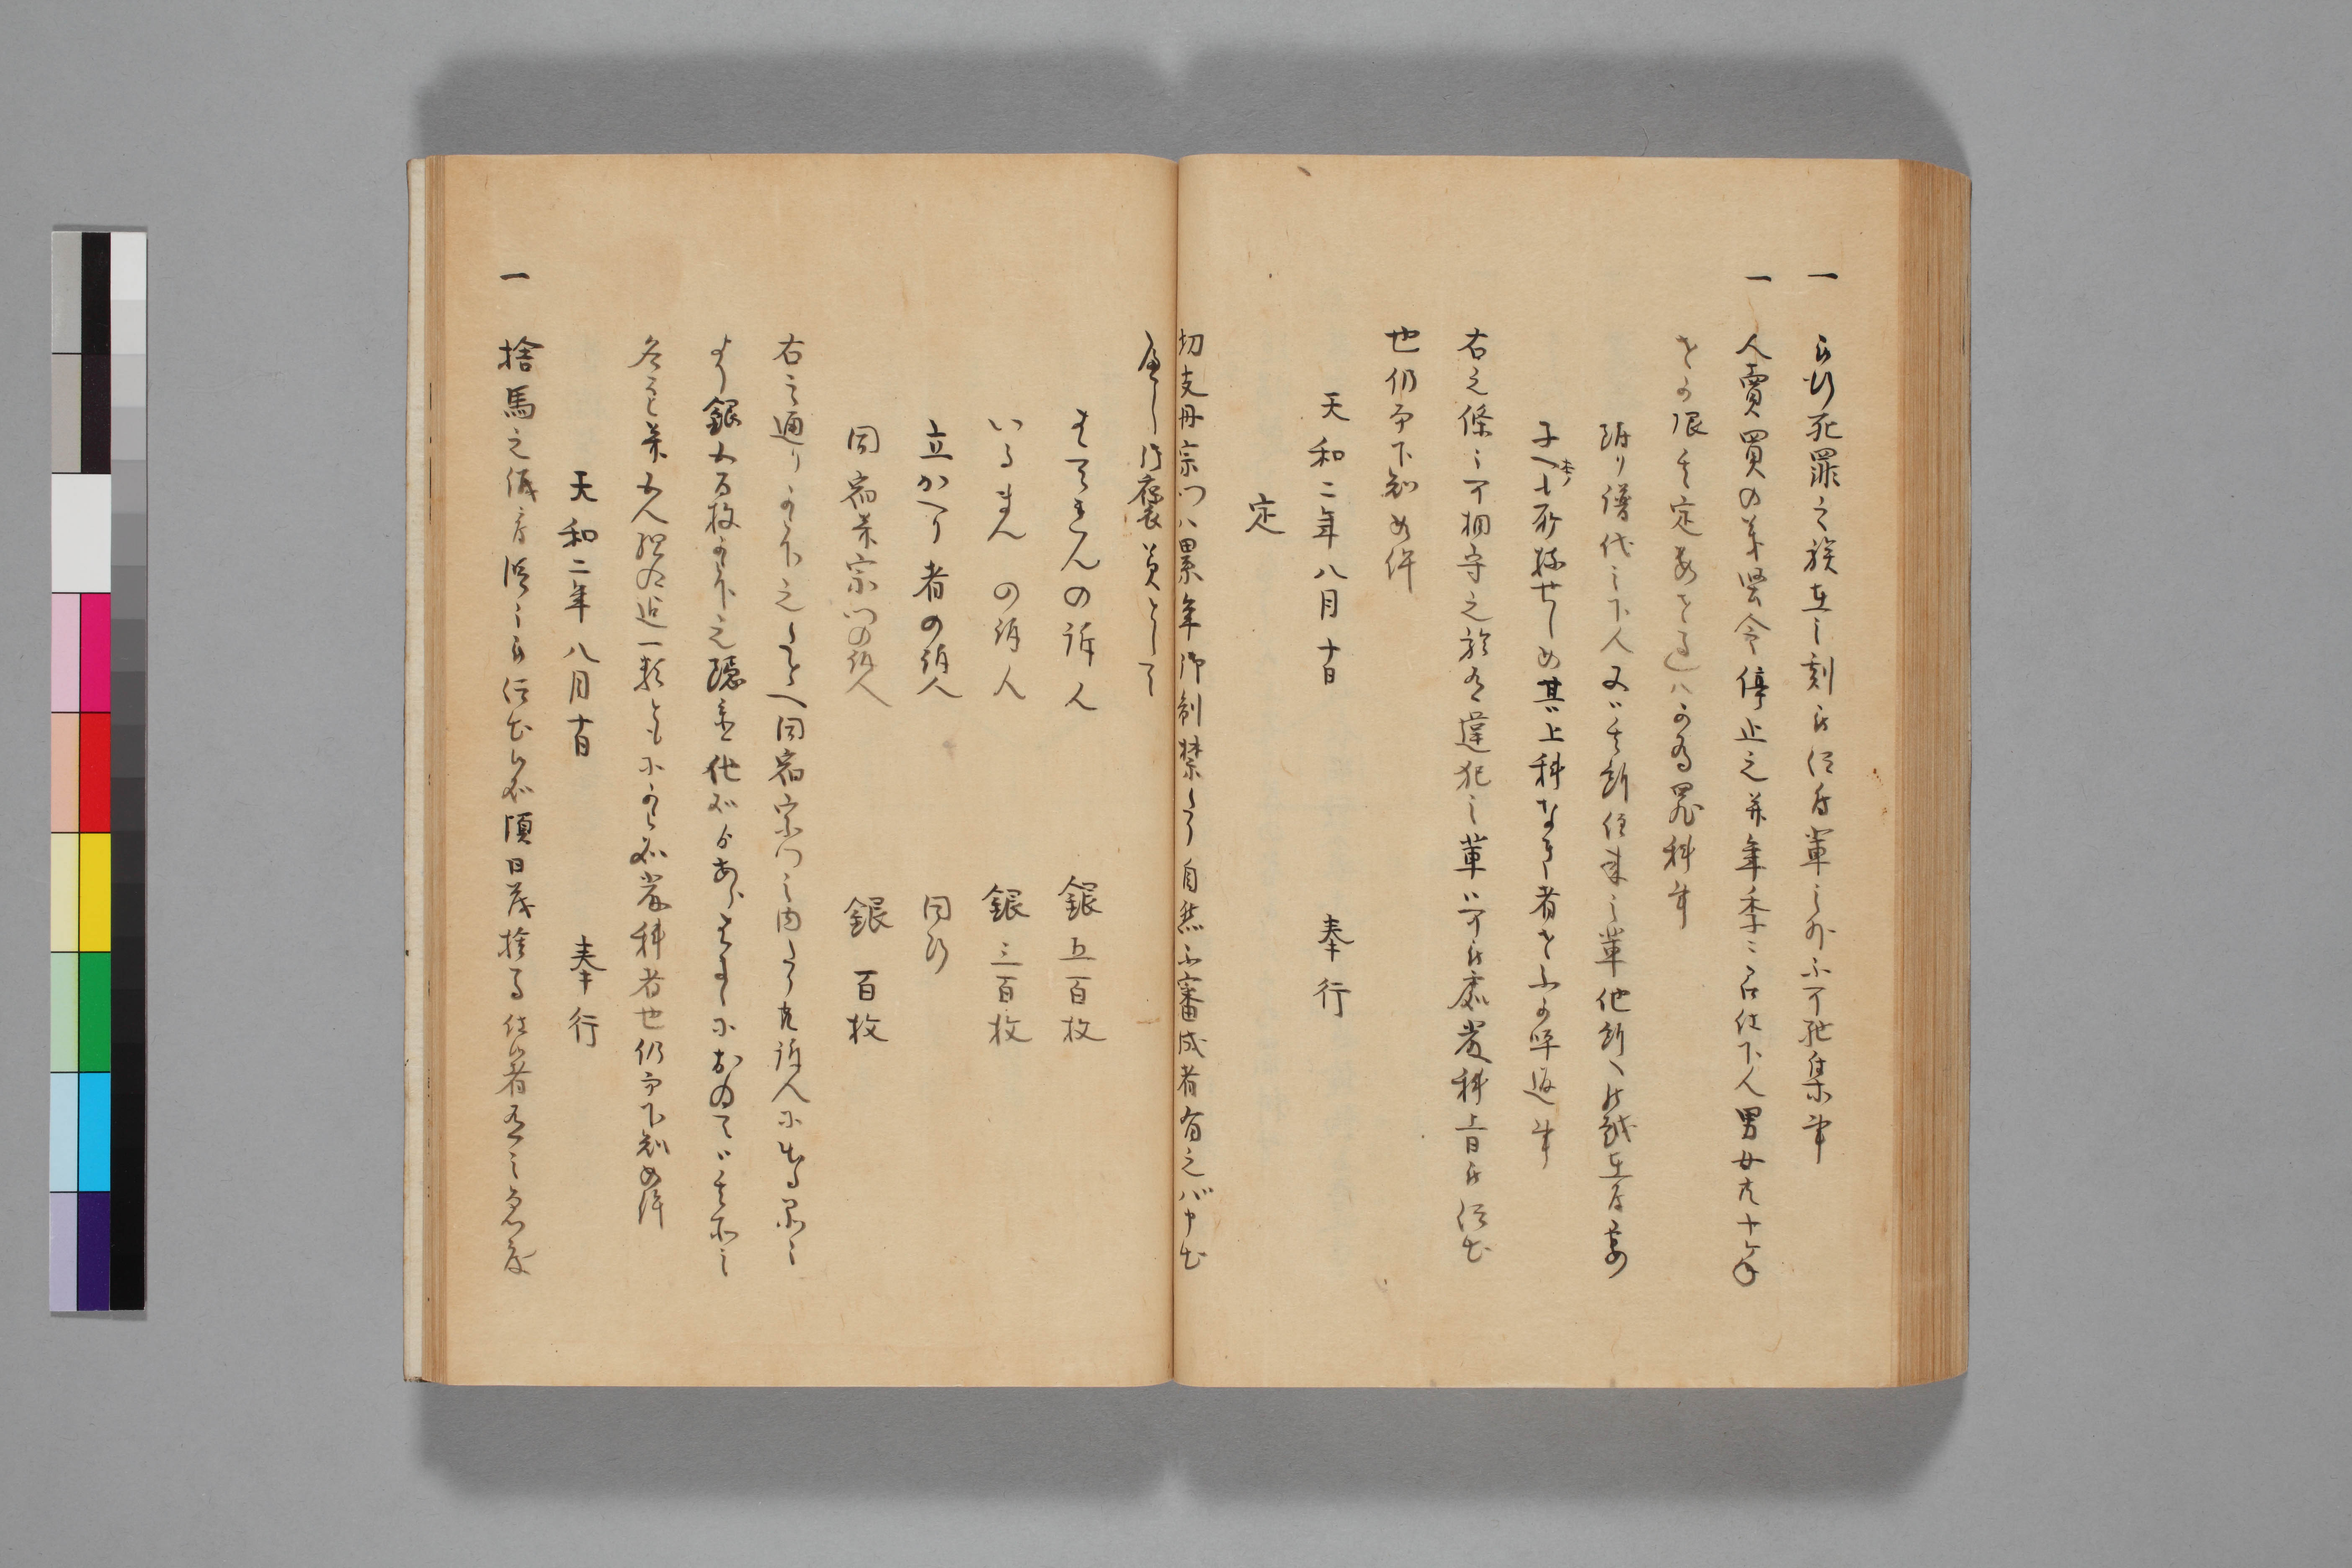 一 被行死罪之族在之刻被仰付輩之外不可馳集事
一 人賣買の事堅令停止之并年季ニ召仕下人男女共十ケ年
を可限其定數を過ハ可為罪科事
附り譜代之下人又ハ其所住来之輩他所へ相越在付妻
子をも所持せしめ其上科なき者を不可呼返事
右之條々可相守之於有違犯之輩ハ可被處嚴科旨被仰出
也仍而下知如件
天和二年八月 日
奉行
定
切支丹宗門ハ累年御制禁たり自然不審成者有之バ申出
へし御褒美として
はてれんの訴人 銀五百枚
いるまんの訴人 銀三百枚
立かへり者の訴人 同断
同宿并宗門の訴人 銀百枚
右之通り可被下之たとへ同宿宗門之内たり共訴人ニ出る品ニ
より銀五百枚可被下之隠置他所よりあらはるゝにおゐてハ其所之
名主并五人組迄一類ともに可被處嚴科者也仍而下知如件
天和二年八月 日
奉行
一 捨馬之儀 被仰出候處頃日茂捨馬仕候者有之急度